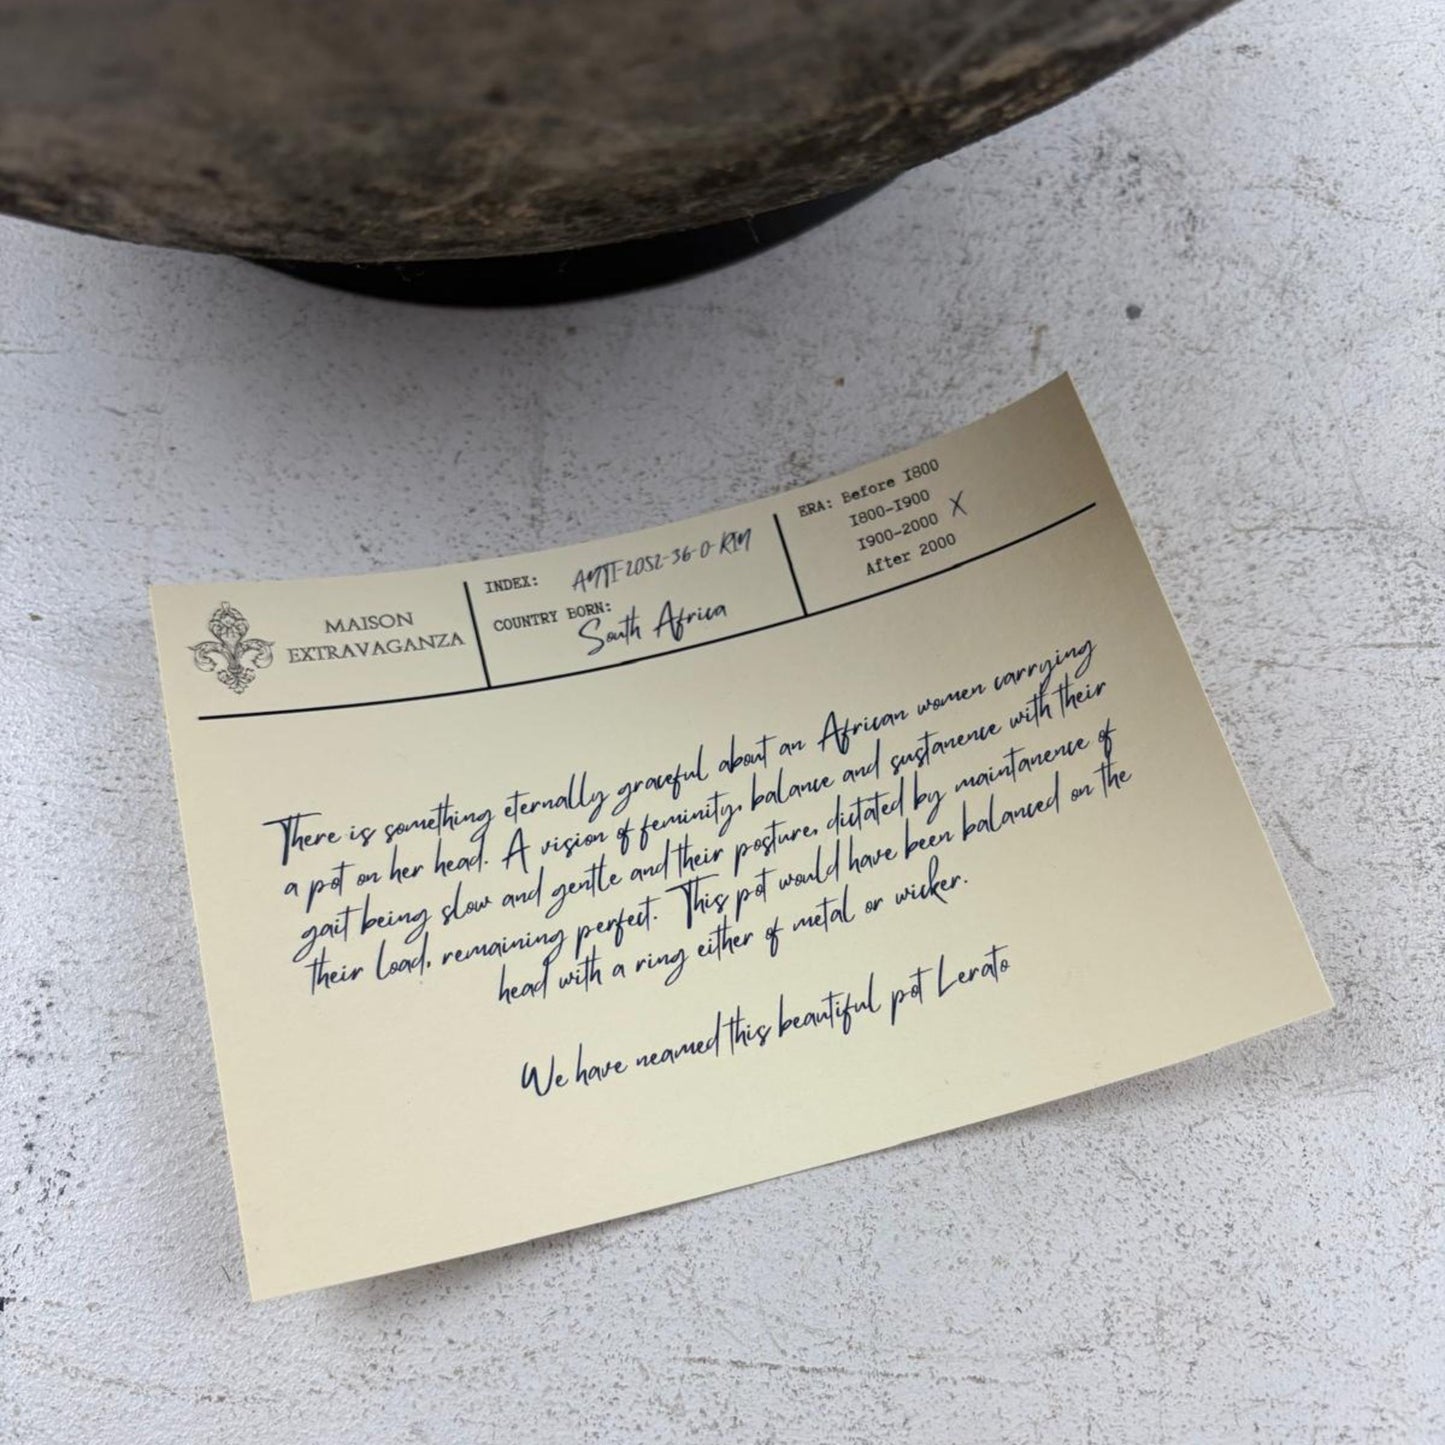 MAISON
EXTRAVAGANZA
INDEX:
COUNTRY BORN:
South Africa
ERA: Before 1800
1800-1900
1900-2000 X
After 2000
There is something eternally graceful about an African women carrying
a pot on her head. A vision of feminity, balance and sustanence with their
gait being slow and gentle and their posture, dictated by maintanence of
their load, remaining perfect. This pot would have been balanced on the
head with a ring either of metal or wicker.
We have neamed this beautiful pot Lerato